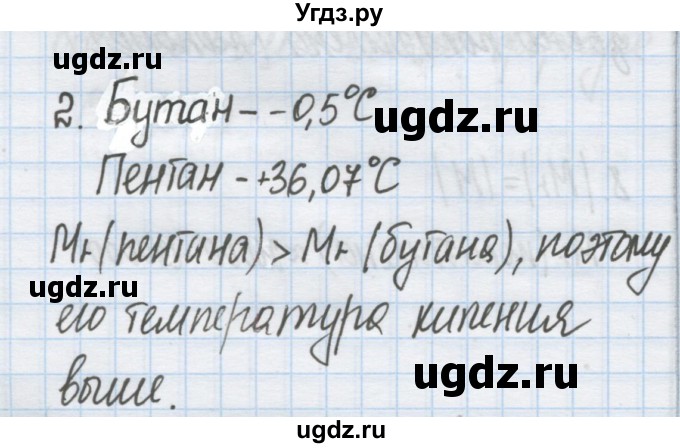 Угдз.ру
ugdz.ru
2. Бутан - -0,5°C
ugdz.ru
ugdz.ru
Пентан - +36,07°C
Mr(пентана) > Mr (бутана), поэтому
ugdz.ru
его температура кипения
ugdz.ru
выше.
ugdz.ru